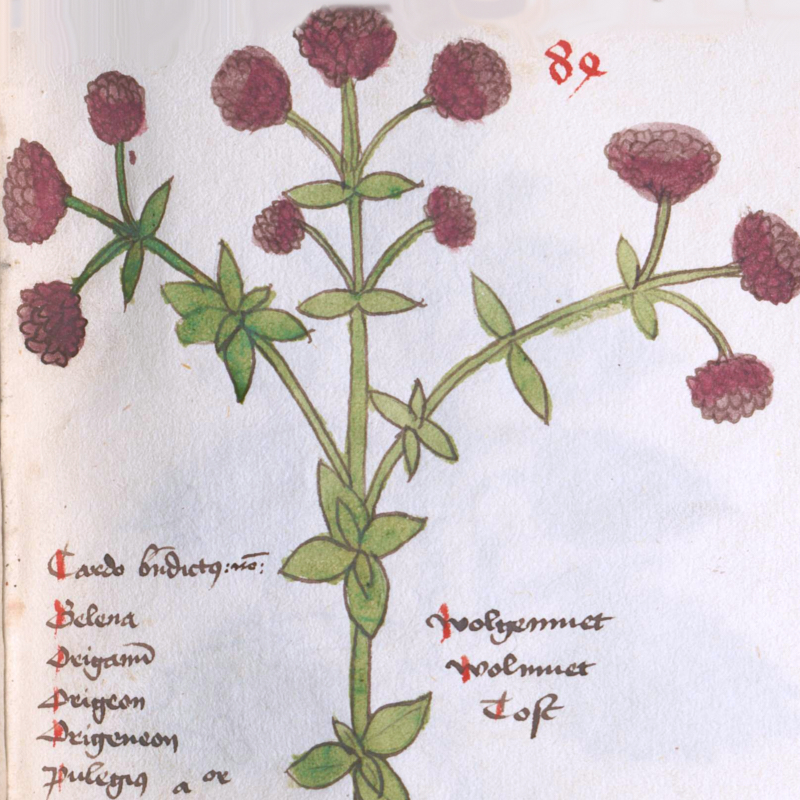 89
Cardo bn̄dictꝯ: nō:
Gelena
Origanū
Origeon
Origeneon
Pulegiꝯ a or
Wolgemuet
Wolmuet
Tost